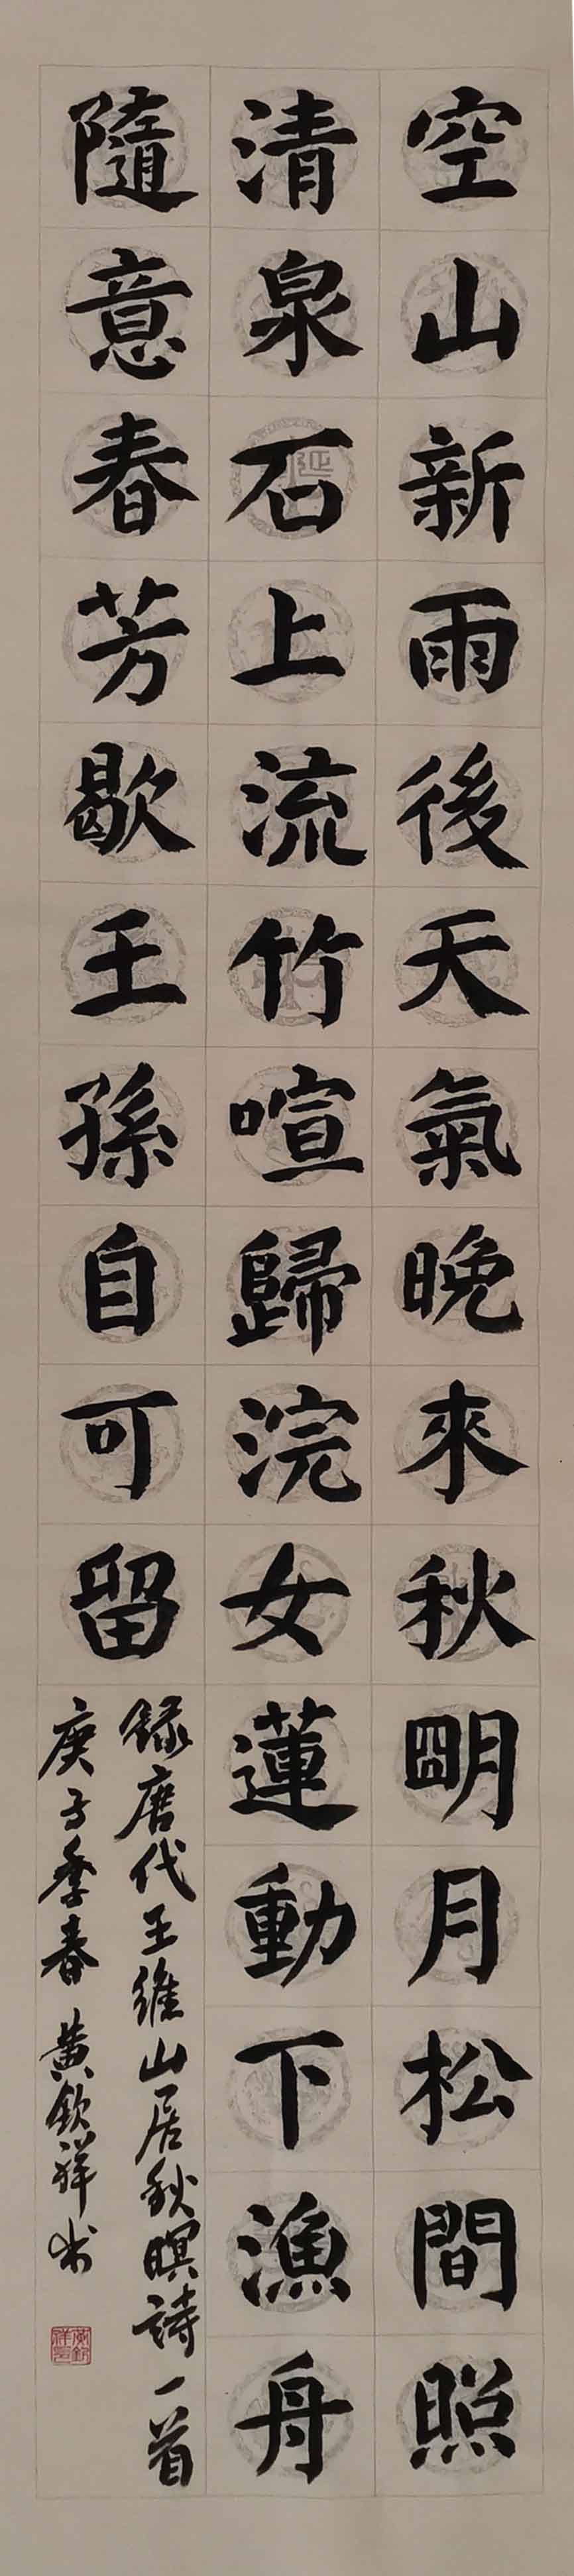 空山新雨後天氣晚來秋明月松間照
清泉石上流竹喧歸浣女蓮動下漁舟
隨意春芳歇王孫自可留
録唐代王維山居秋暝詩一首
庚子季春黄欽祥书